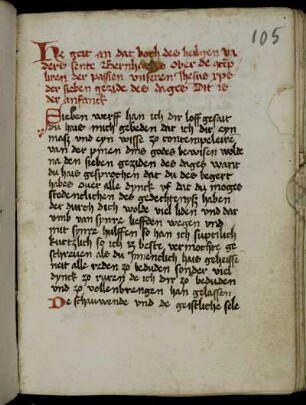 105
He geit an dat boch des heilgen va
ders sente Bernhardus ober de
der passien unseren Jhesus xpe
der sieben gezide des dages Dit is
der anfanck
Sieben werff han ich dir loff gesait
du hais mich gebeden dat ich dir eyn
masi und eyn wisse zo contempeleire
van der pinen dins godes bewisen wolde
na den sieben geziden des dages want
du hais gesprochen dat du des begert
habes over alle dynck up dat du moges
stedenclichen des gedechteniß haben
der durch dich wolde viel liden und dar
umb van synre lieffden wegen und
mit synre hulffen so han ich
kurtzlich so ich iz beste vermochte ge
schreven als du hais geheisse
neit alle reden zo beduden sonder viel
dynck zo ruren de ich dir zo beduden
und zo vollenbrengen han gelassen
De schauwende und de geistliche sele